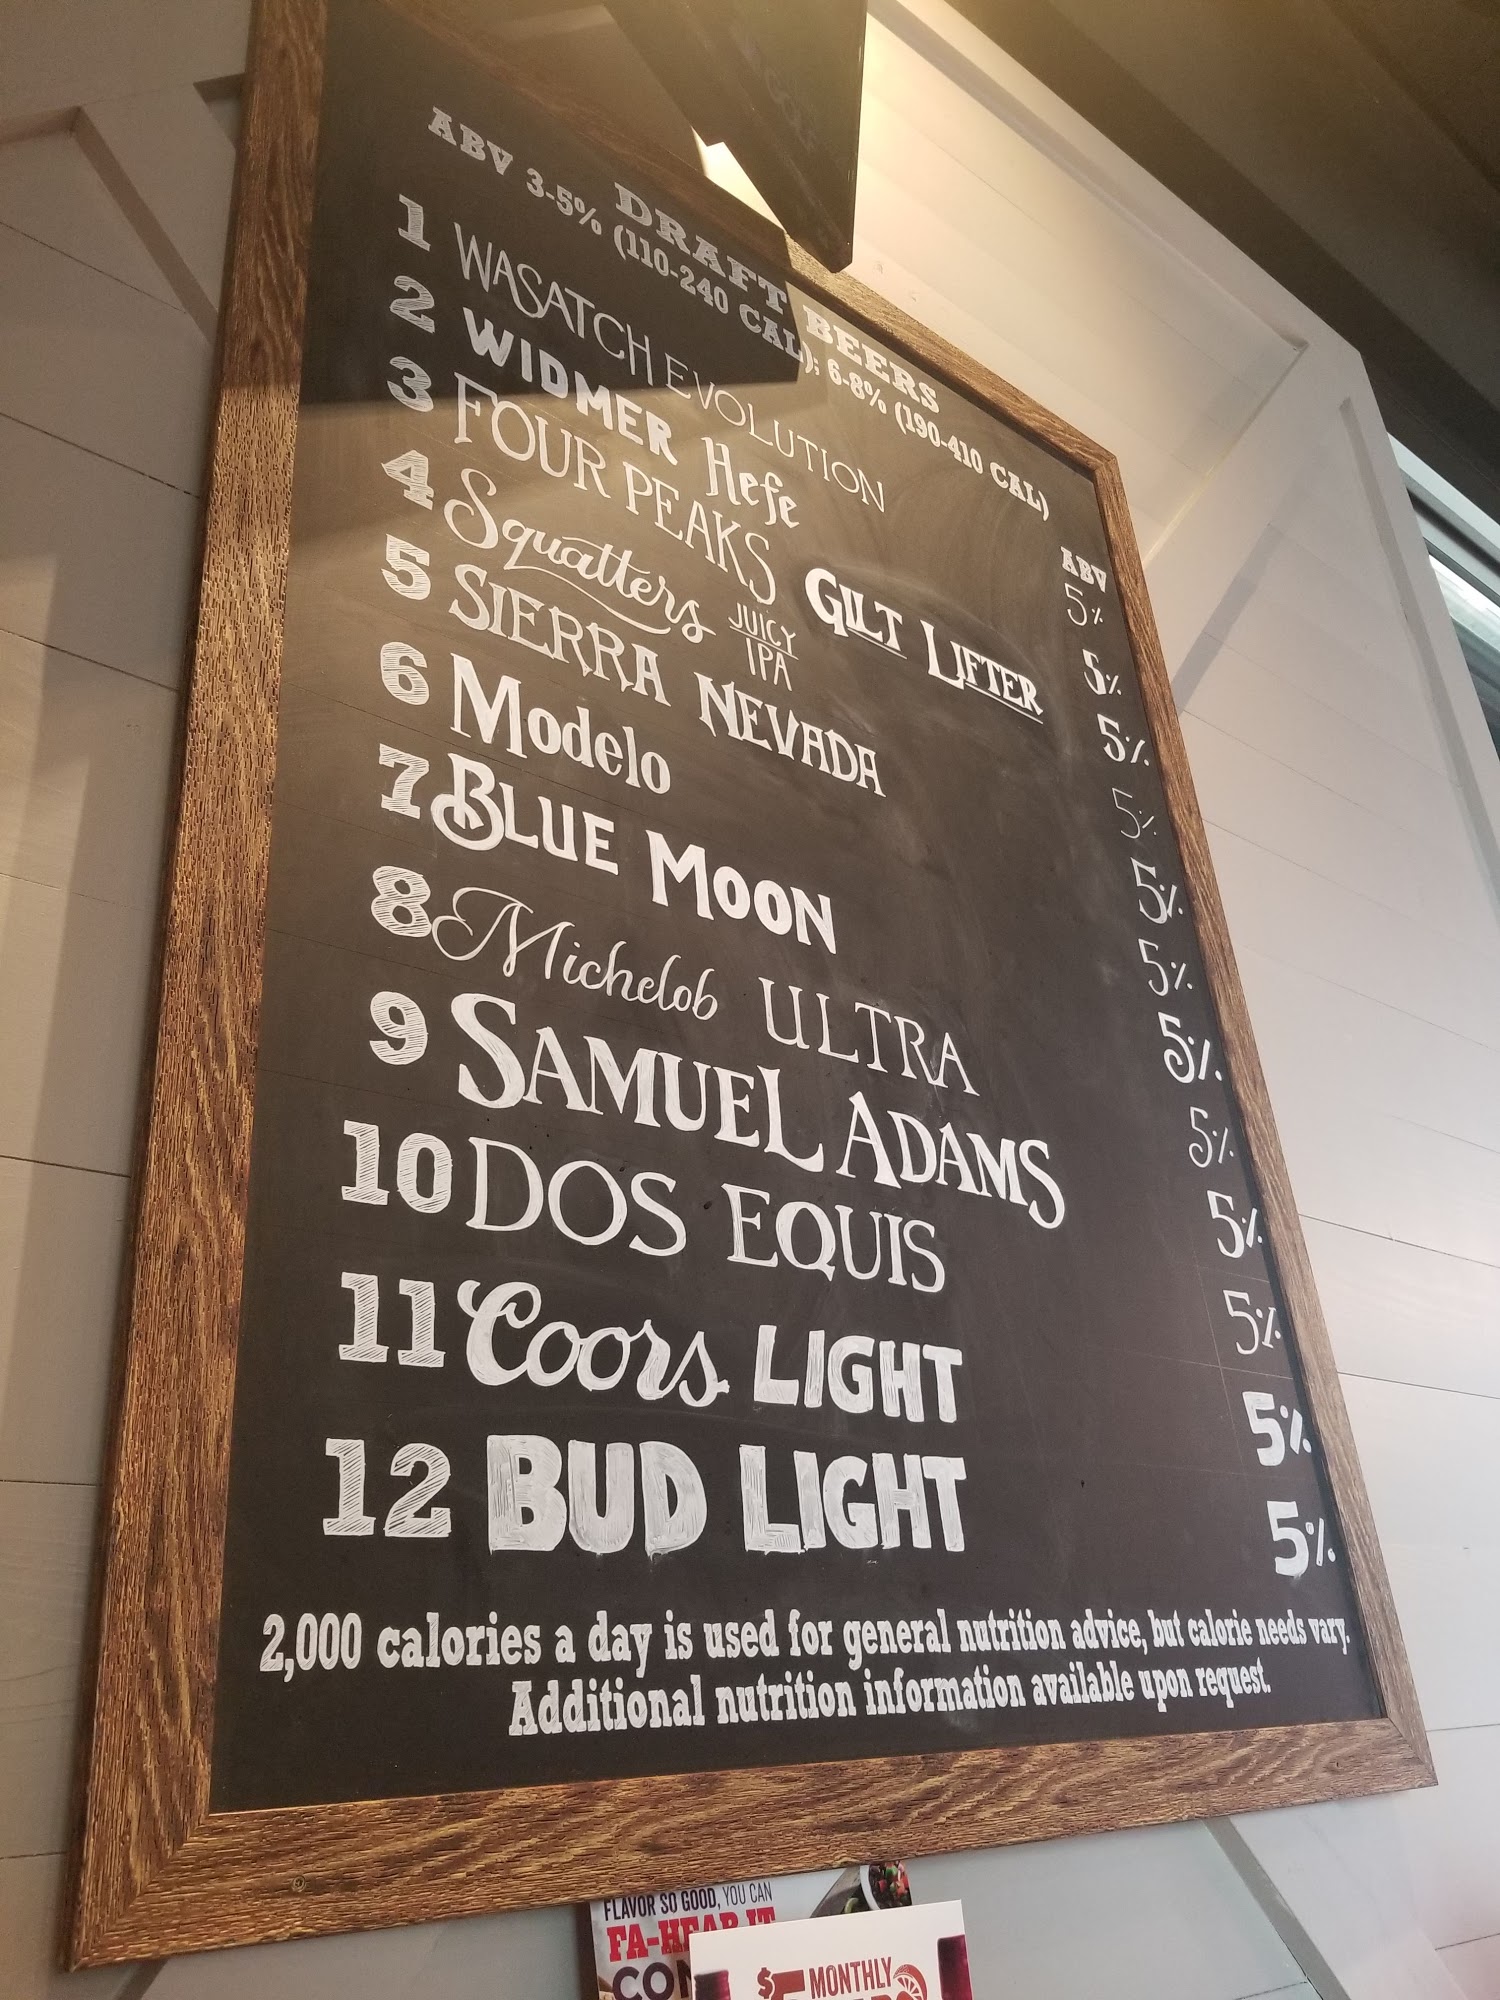 DRAFT BEERS
ABV 3-5% (110-240 CAL); 6-8% (190-410 CAL)
ABV
1 WASATCH EVOLUTION 5%
2 WIDMER Hefe 5%
3 FOUR PEAKS GILT LIFTER 5%
4 Squatters JUICY IPA 5%
5 SIERRA NEVADA 5%
6 Modelo 5%
7 BLUE MOON 5%
8 Michelob ULTRA 5%
9 SAMUEL ADAMS 5%
10 DOS EQUIS 5%
11 Coors LIGHT 5%
12 BUD LIGHT 5%
2,000 calories a day is used for general nutrition advice, but calorie needs vary.
Additional nutrition information available upon request.
FLAVOR SO GOOD, YOU CAN
FA-HEAR IT
$5 MONTHLY